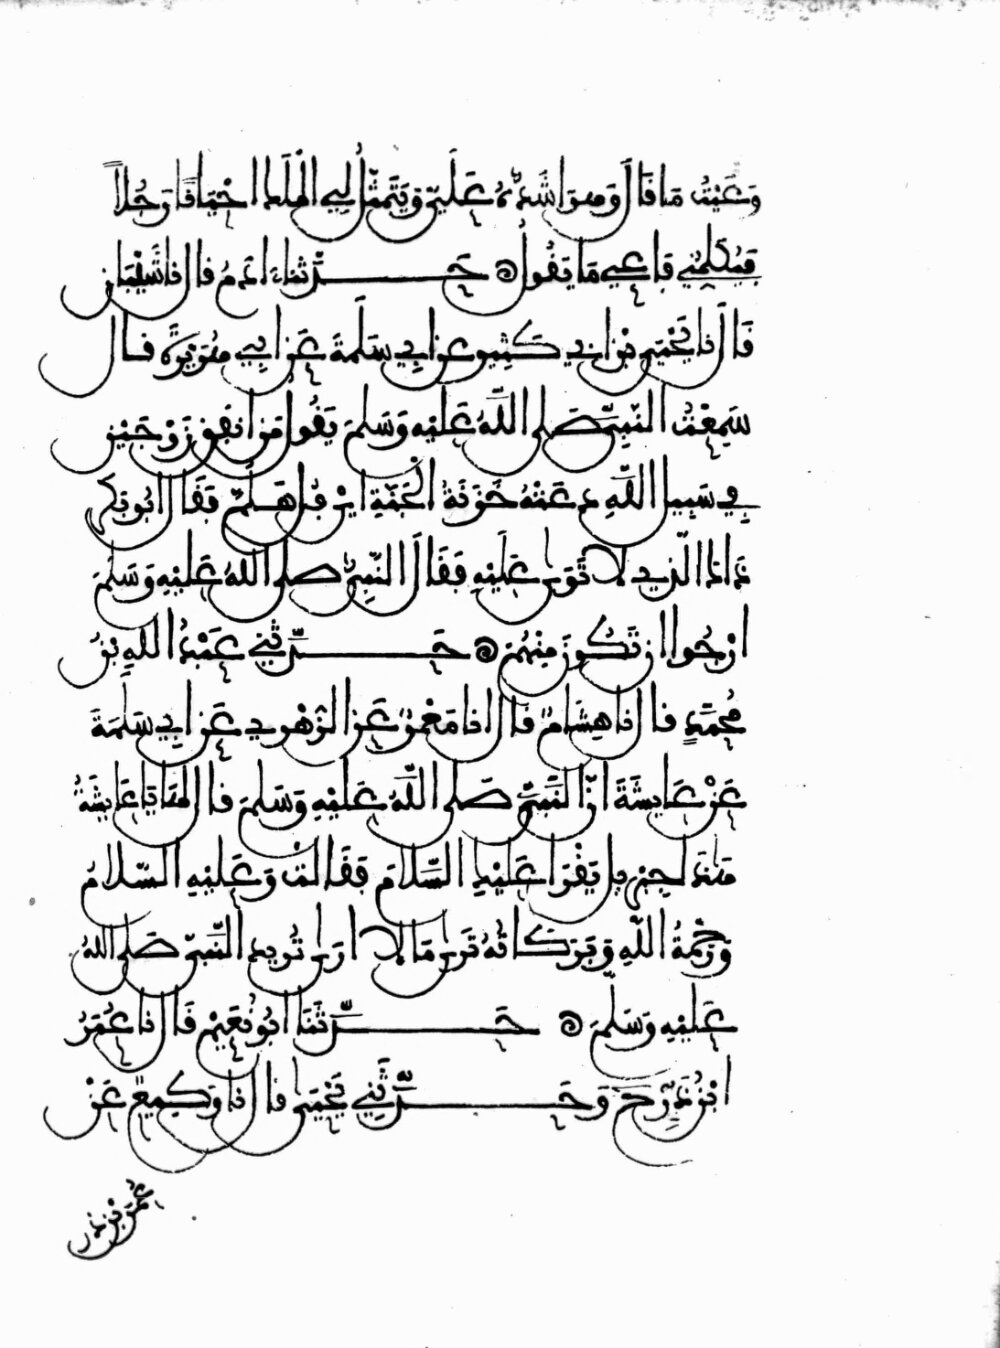 وَعَيْتُ مَا قَالَ وَهوَ اَشَدُّهُ عَلَيّ وَيَتَمَثّلُ لِي الْمَلَك اَحْيَانًا رَجُلاً
فَيُكَلِّمُنِي فَاَعِي مَا يَقُولُ حَدّثناءَادَمُ قال نا شَيْبَان
قَالَ نا يَحْيَى بْن اَبِي كَثِيرٍ عن اَبِي سَلَمةَ عَن اَبِي هُرَيْرَةَ قال
سَمِعْتُ النّبِيّ صَلى اللّهُ عَلَيْهِ وَسَلمَ يَقُول مَن اَنفَقَ زَوْجَيْن
فِي سَبِيل اللّهِ دَعَتْهُ خَزَنَةُ الْجَنّةِ اَيْ فُل هَلُمّ فَقَال اَبُو بَكر
ذَاكَ الّذِي لا تَوَى عَلَيْهِ فَقَالَ النّبِيُّ صلى اللهُ عَلَيْهِ وَسَلمَ
اَرْجُوا ان تَكُونَ مِنْهُمْ حَدّثَنِي عَبْدُ اللهِ بْنُ
مُحَمّدٍ قال نا هِشَامٌ قال انا مَعْمَرٌ عَن الزّهْرِي عَن اَبِي سَلَمَةَ
عَنْ عَايِشَةَ اَنّ النَّبِيّ صَلى اللّهُ عَلَيْهِ وَسَلمَ قال لهَا يا عَايِشَةُ
هَذَا جِبْرِيل يَقْرَا عَلَيْكِ السَّلامَ فَقَالتْ وَعَلَيْهِ السّلامُ
وَرَحْمَةُ اللّهِ وَبَرَكَاتُهُ تَرَى مَا لا اَرَى تُرِيد النّبِيّ صَلى اللهُ
عَلَيْهِ وَسَلّمَ حَدّثَنَا اَبُو نُعَيْمٍ قَال نا عُمَرُ
ابْنُ ذَرّ ح وَحَدّثَنِي يَحْيَى قال نا وَكِيعٌ عَنْ
عُمَرَ بْن ذَر